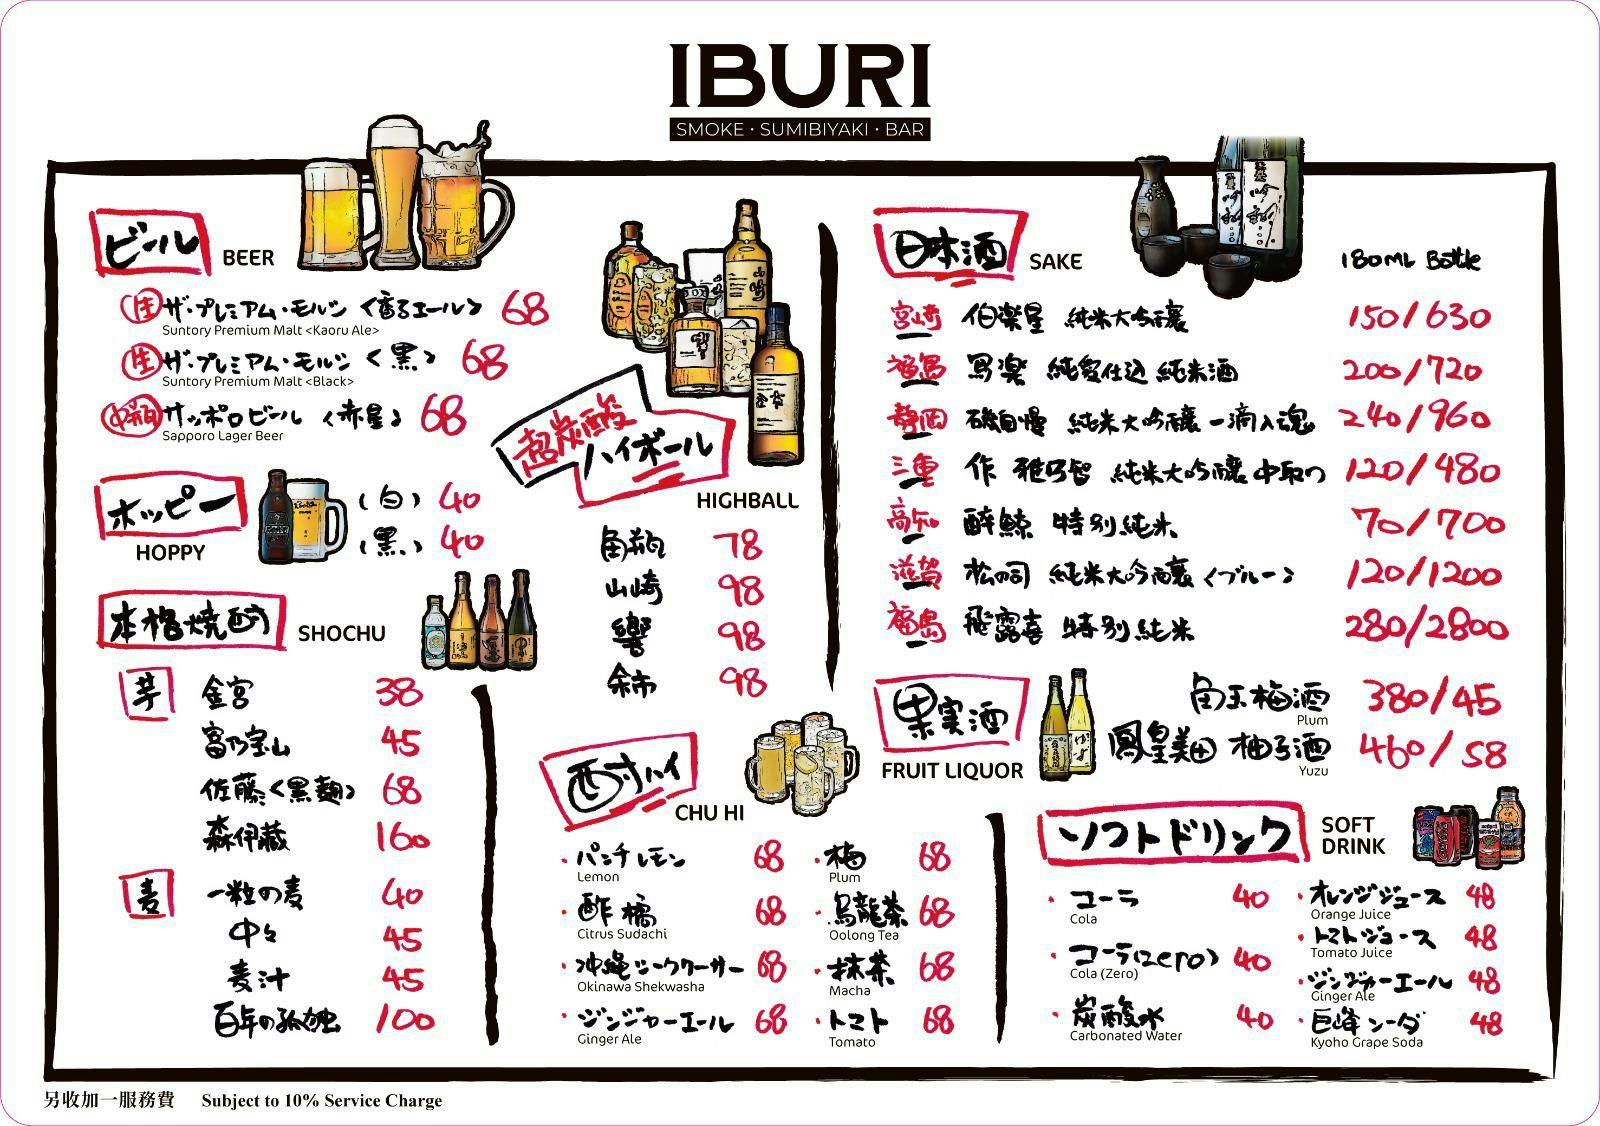 IBURI
SMOKE・SUMIBIYAKI・BAR
ビール BEER
生 ザ・プレミアム・モルツ〈香るエール〉 68
Suntory Premium Malt <Kaoru Ale>
生 ザ・プレミアム・モルツ〈黒〉 68
Suntory Premium Malt <Black>
中瓶 サッポロビール〈赤星〉 68
Sapporo Lager Beer
ホッピー HOPPY
(白) 40
(黒) 40
本格焼酎 SHOCHU
芋 金宮 38
富乃宝山 45
佐藤〈黒麹〉 68
森伊蔵 160
麦 一粒の麦 40
中々 45
麦汁 45
百年の孤独 100
超炭酸ハイボール
HIGHBALL
角瓶 78
山崎 98
響 98
余市 98
酎ハイ
CHU HI
・パンチレモン 68
Lemon
・酢橘 68
Citrus Sudachi
・沖縄シークワーサー 68
Okinawa Shekwasha
・ジンジャーエール 68
Ginger Ale
・梅 68
Plum
・烏龍茶 68
Oolong Tea
・抹茶 68
Macha
・トマト 68
Tomato
日本酒 SAKE
180ML Bottle
宮崎 伯楽星 純米大吟醸 150/630
福島 寫楽 純愛仕込 純米酒 200/720
静岡 磯自慢 純米大吟醸 一滴入魂 240/960
三重 作 雅乃智 純米大吟醸 中取り 120/480
高知 酔鯨 特別純米 70/700
滋賀 松の司 純米大吟醸〈ブルー〉 120/1200
福島 飛露喜 特別純米 280/2800
果実酒
FRUIT LIQUOR
角玉梅酒 380/45
Plum
鳳凰美田 柚子酒 460/58
Yuzu
ソフトドリンク SOFT DRINK
・コーラ 40
Cola
・コーラ(zero) 40
Cola (Zero)
・炭酸水 40
Carbonated Water
・オレンジジュース 48
Orange Juice
・トマトジュース 48
Tomato Juice
・ジンジャーエール 48
Ginger Ale
・巨峰ソーダ 48
Kyoho Grape Soda
另收加一服務費 Subject to 10% Service Charge